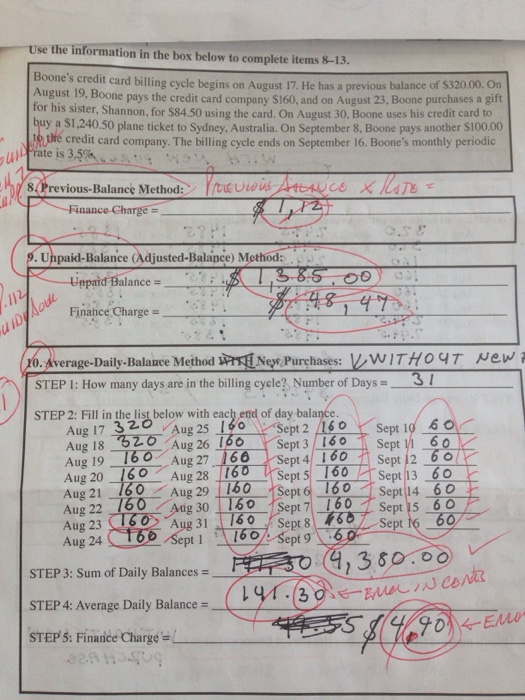 Use the information in the box below to complete items 8–13.
Boone's credit card billing cycle begins on August 17. He has a previous balance of $320.00. On
August 19, Boone pays the credit card company $160, and on August 23, Boone purchases a gift
for his sister, Shannon, for $84.50 using the card. On August 30, Boone uses his credit card to
buy a $1,240.50 plane ticket to Sydney, Australia. On September 8, Boone pays another $100.00
to the credit card company. The billing cycle ends on September 16. Boone's monthly periodic
rate is 3.5%.
8. Previous-Balance Method: PREVIOUS BALANCE X RATE =
Finance Charge = $1,12
9. Unpaid-Balance (Adjusted-Balance) Method:
Unpaid Balance = $1,385.00
P.112
Finance Charge = $48,47
10. Average-Daily-Balance Method WITH New Purchases: WITHOUT NEW
STEP 1: How many days are in the billing cycle? Number of Days = 31
STEP 2: Fill in the list below with each end of day balance.
Aug 17 320 Aug 25 160 Sept 2 160 Sept 10 60
Aug 18 320 Aug 26 160 Sept 3 160 Sept 11 60
Aug 19 160 Aug 27 160 Sept 4 160 Sept 12 60
Aug 20 160 Aug 28 160 Sept 5 160 Sept 13 60
Aug 21 160 Aug 29 160 Sept 6 160 Sept 14 60
Aug 22 160 Aug 30 160 Sept 7 160 Sept 15 60
Aug 23 160 Aug 31 160 Sept 8 Sept 16 60
Aug 24 160 Sept 1 160 Sept 9 60
STEP 3: Sum of Daily Balances = 4,380.00
STEP 4: Average Daily Balance = 141.30 ERROR IN CENTS
STEP 5: Finance Charge = $4,90